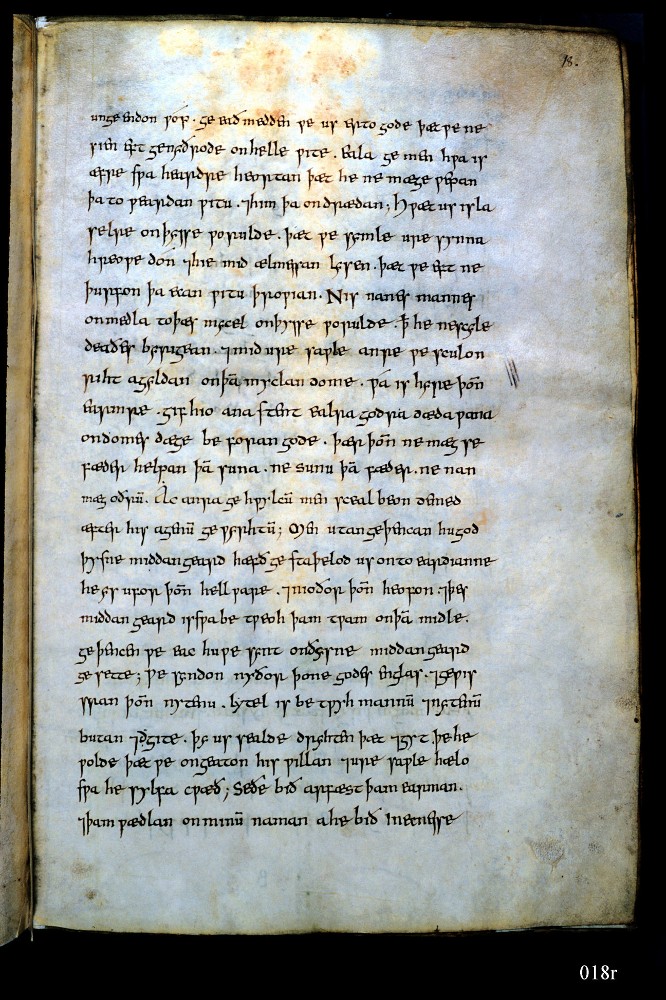 18.
unge endon for · ge eað medden ƿe us eft to gode þæt ƿe ne
sien eft geniðrode on helle ƿite . Eala ge men hƿa is
æfre sƿa heardre heortan þæt he ne mæge ƿepan
þa to ƿeardan ƿitu . ⁊him þa ondrædan ; Hƿæt us is la
selre on þysse ƿorulde . þæt ƿe symle ure synna
hreoƿe don ⁊hie mid ælmessan lysen . þæt ƿe eft ne
þurfon þa ecan ƿitu þroƿian · Nis nanes mannes
onmedla to þæs mycel on þysse ƿorulde . ꝥ he ne scyle
deaðes byrgean . ⁊mid ure saƿle anre ƿe sculon
riht agyldan on þā myclan dome . ƿa is hyre þōn
earmre . gif hio ana stent ealra godra dæda ƿana
on domes dæge be foran gode . þær þōn ne mæg se
fæder helpan þā suna . ne sunu þā fæder . ne nan
mæg oðrū . Ac anra ge hƿylcū men sceal beon demed
æfter his agenū ge ƿyrhtū ; Men utan geþencan hu god
þysne middangeard hæfð ge staþelod us on to eardianne
he ys ufor þōn hell ƿare . ⁊nioðor þōn heofon . ⁊þes
middan geard is sƿa be tƿeoh þam tƿam on þā midle .
ge þencen ƿe eac hu ƿe synt on ðysne middangeard
ge sette ; Ƿe syndon nyðor þone godes englas . ⁊geƿis
sran þōn nytenu . Lytel is be tƿyh mannū ⁊nytenū
butan ⁊dgite . þe us sealde drihten þæt ⁊gyt . þe he
ƿolde þæt ƿe ongeaton his ƿillan ⁊ure saƿle hælo
sƿa he sylfa cƿæð ; Se ðe bið arfæst þam earman .
⁊þam ƿædlan on minū naman a he bið in ecnesse
018r